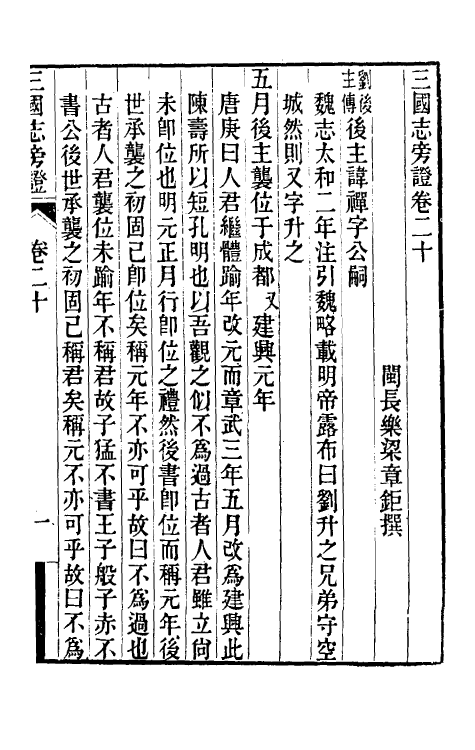 三國志旁證卷二十
閩長樂梁章鉅撰
劉後主傳後主諱禪字公嗣
魏志太和二年注引魏略載明帝露布曰劉升之兄弟守空
城然則又字升之
五月後主襲位于成都又建興元年
唐庚曰人君繼體踰年改元而章武三年五月改為建興此
陳壽所以短孔明也以吾觀之似不為過古者人君雖立尙
未卽位也明元正月行卽位之禮然後書卽位而稱元年後
世承襲之初固已卽位矣稱元年不亦可乎故曰不為過也
古者人君襲位未踰年不稱君故子猛不書王子般子赤不
書公後世承襲之初固已稱君矣稱元不亦可乎故曰不為
三國志旁證
卷二十
一